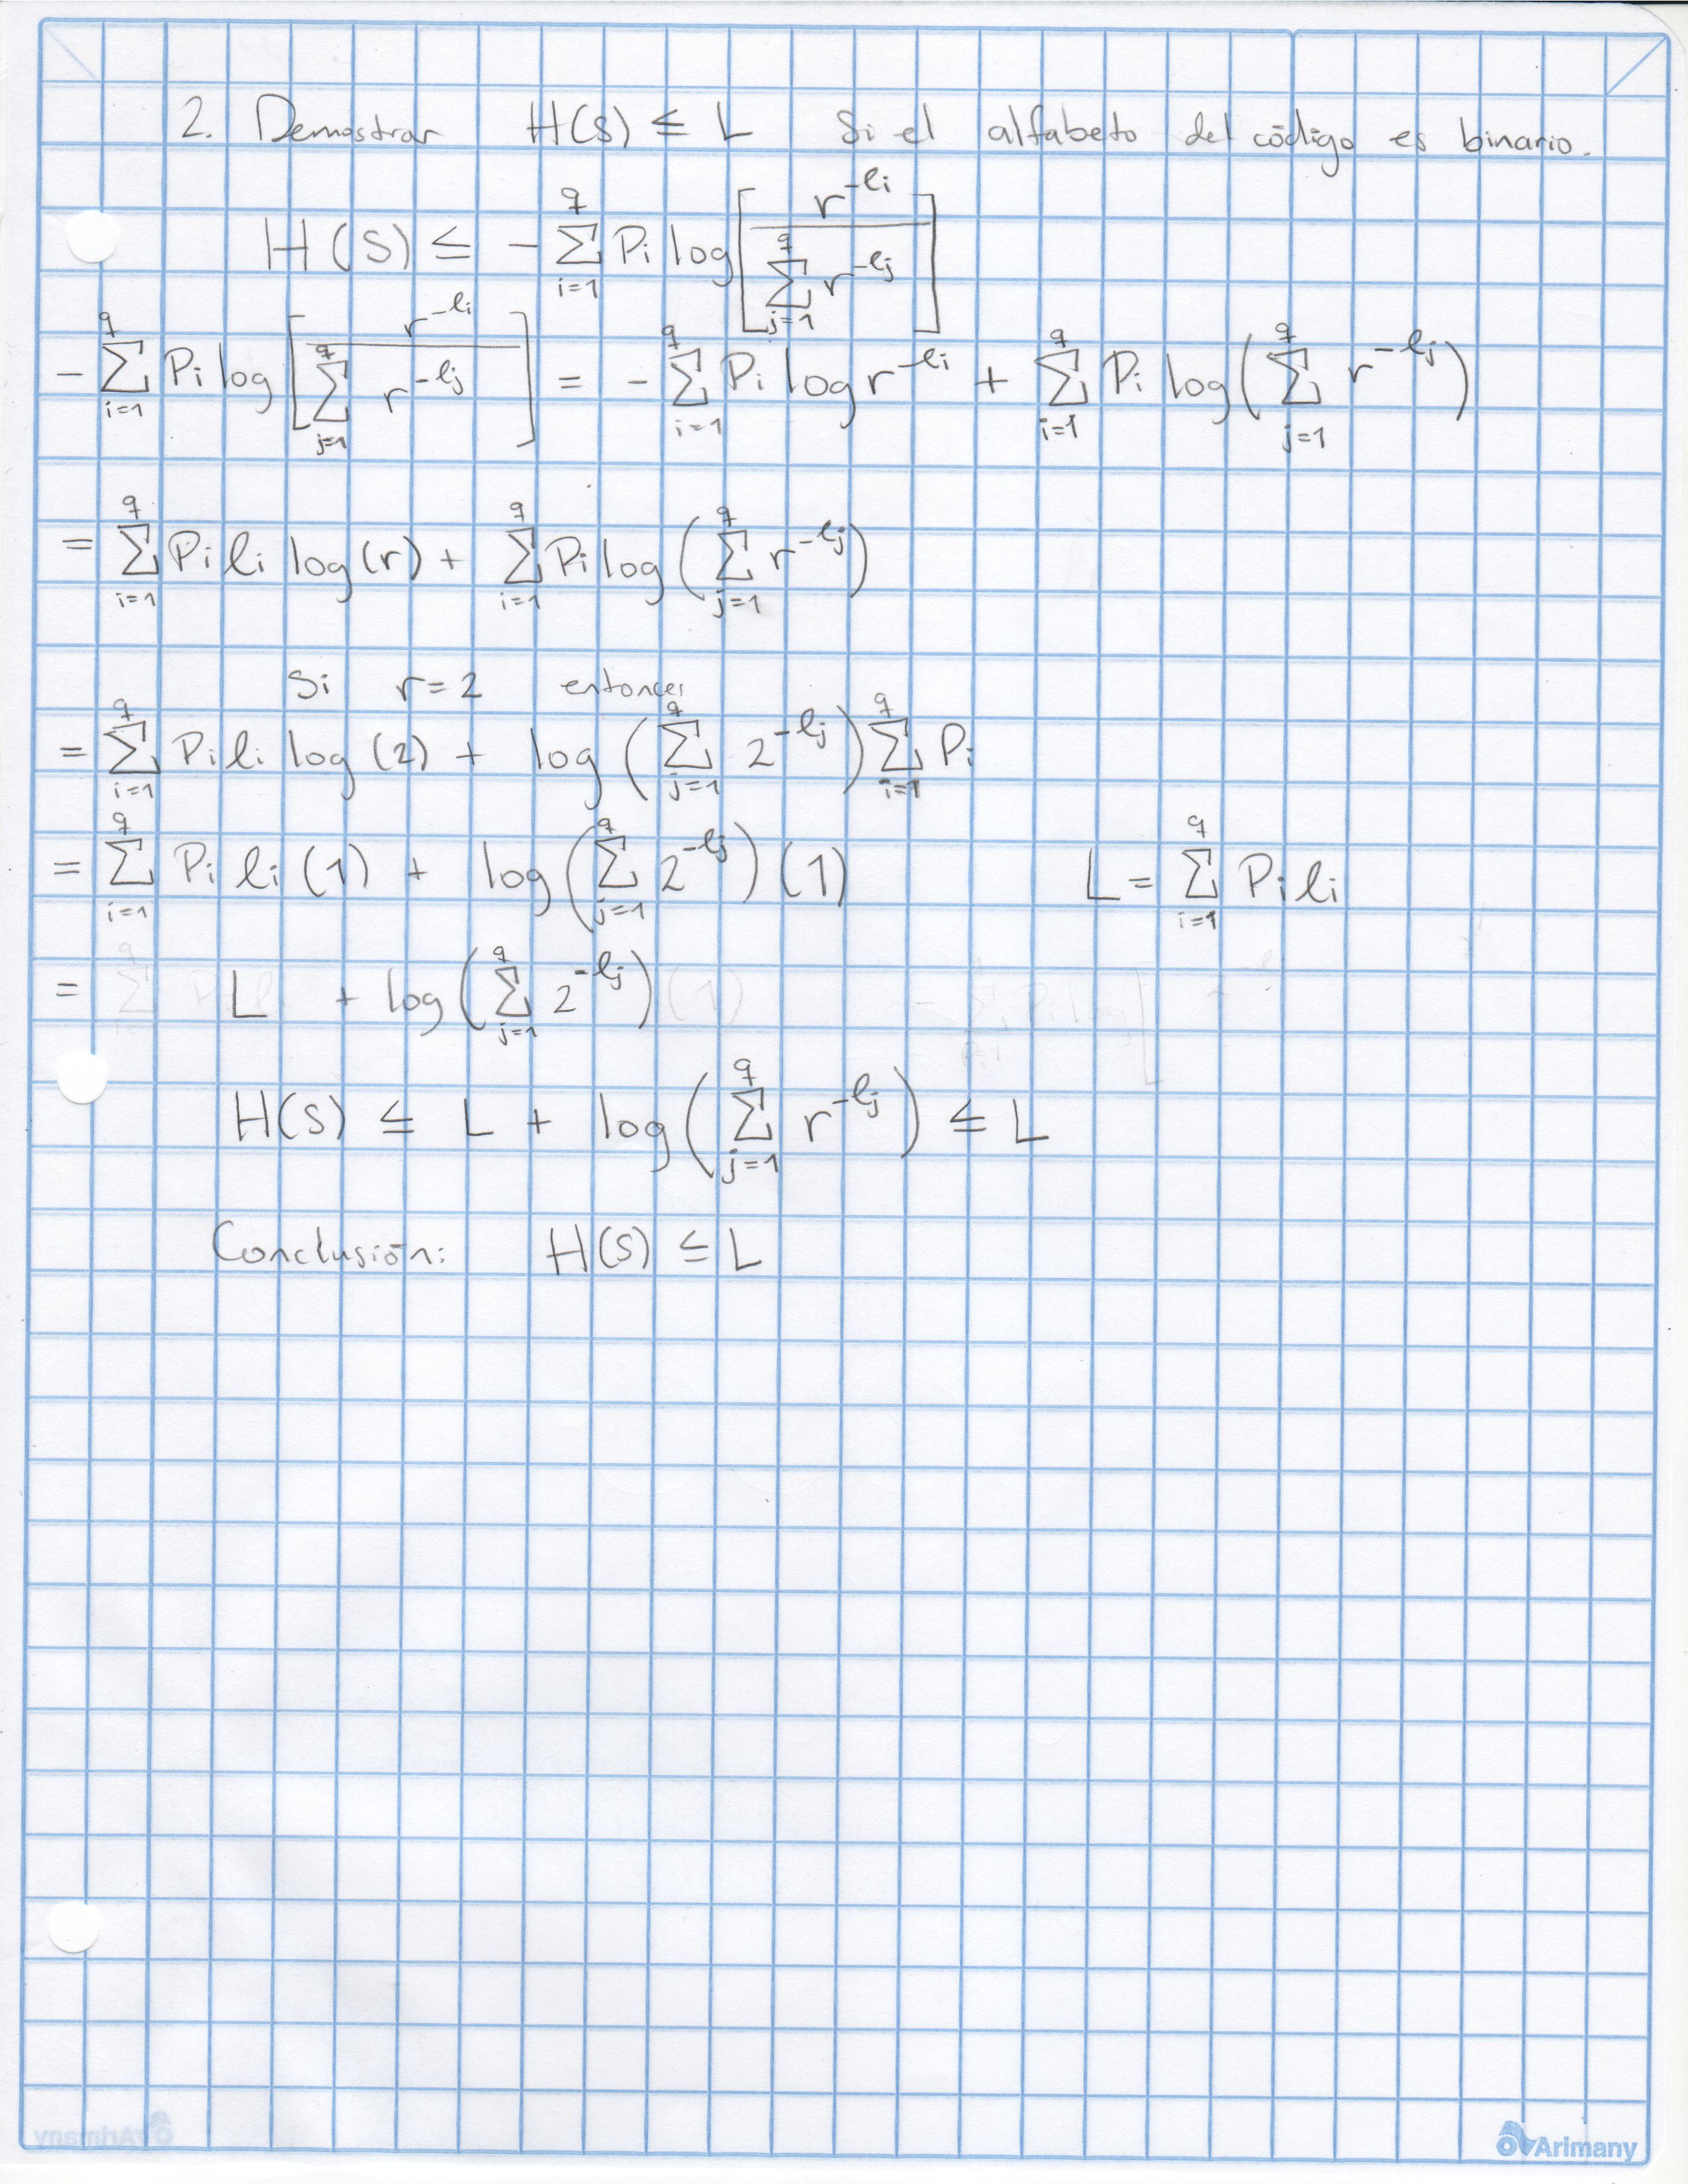 2. Demostrar H(S) ≤ L Si el alfabeto del código es binario.
H(S) ≤ - \sum_{i=1}^{q} Pi log [ \frac{r^{-li}}{\sum_{j=1}^{q} r^{-lj}} ]
- \sum_{i=1}^{q} Pi log [ \frac{r^{-li}}{\sum_{j=1}^{q} r^{-lj}} ] = - \sum_{i=1}^{q} Pi log r^{-li} + \sum_{i=1}^{q} Pi log ( \sum_{j=1}^{q} r^{-lj} )
= \sum_{i=1}^{q} Pi li log (r) + \sum_{i=1}^{q} Pi log ( \sum_{j=1}^{q} r^{-lj} )
Si r = 2 entonces
= \sum_{i=1}^{q} Pi li log (2) + log ( \sum_{j=1}^{q} 2^{-lj} ) \sum_{i=1}^{q} Pi
= \sum_{i=1}^{q} Pi li (1) + log ( \sum_{j=1}^{q} 2^{-lj} ) (1) L = \sum_{i=1}^{q} Pi li
= L + log ( \sum_{j=1}^{q} 2^{-lj} )
H(S) ≤ L + log ( \sum_{j=1}^{q} r^{-lj} ) ≤ L
Conclusión: H(S) ≤ L
Arimany